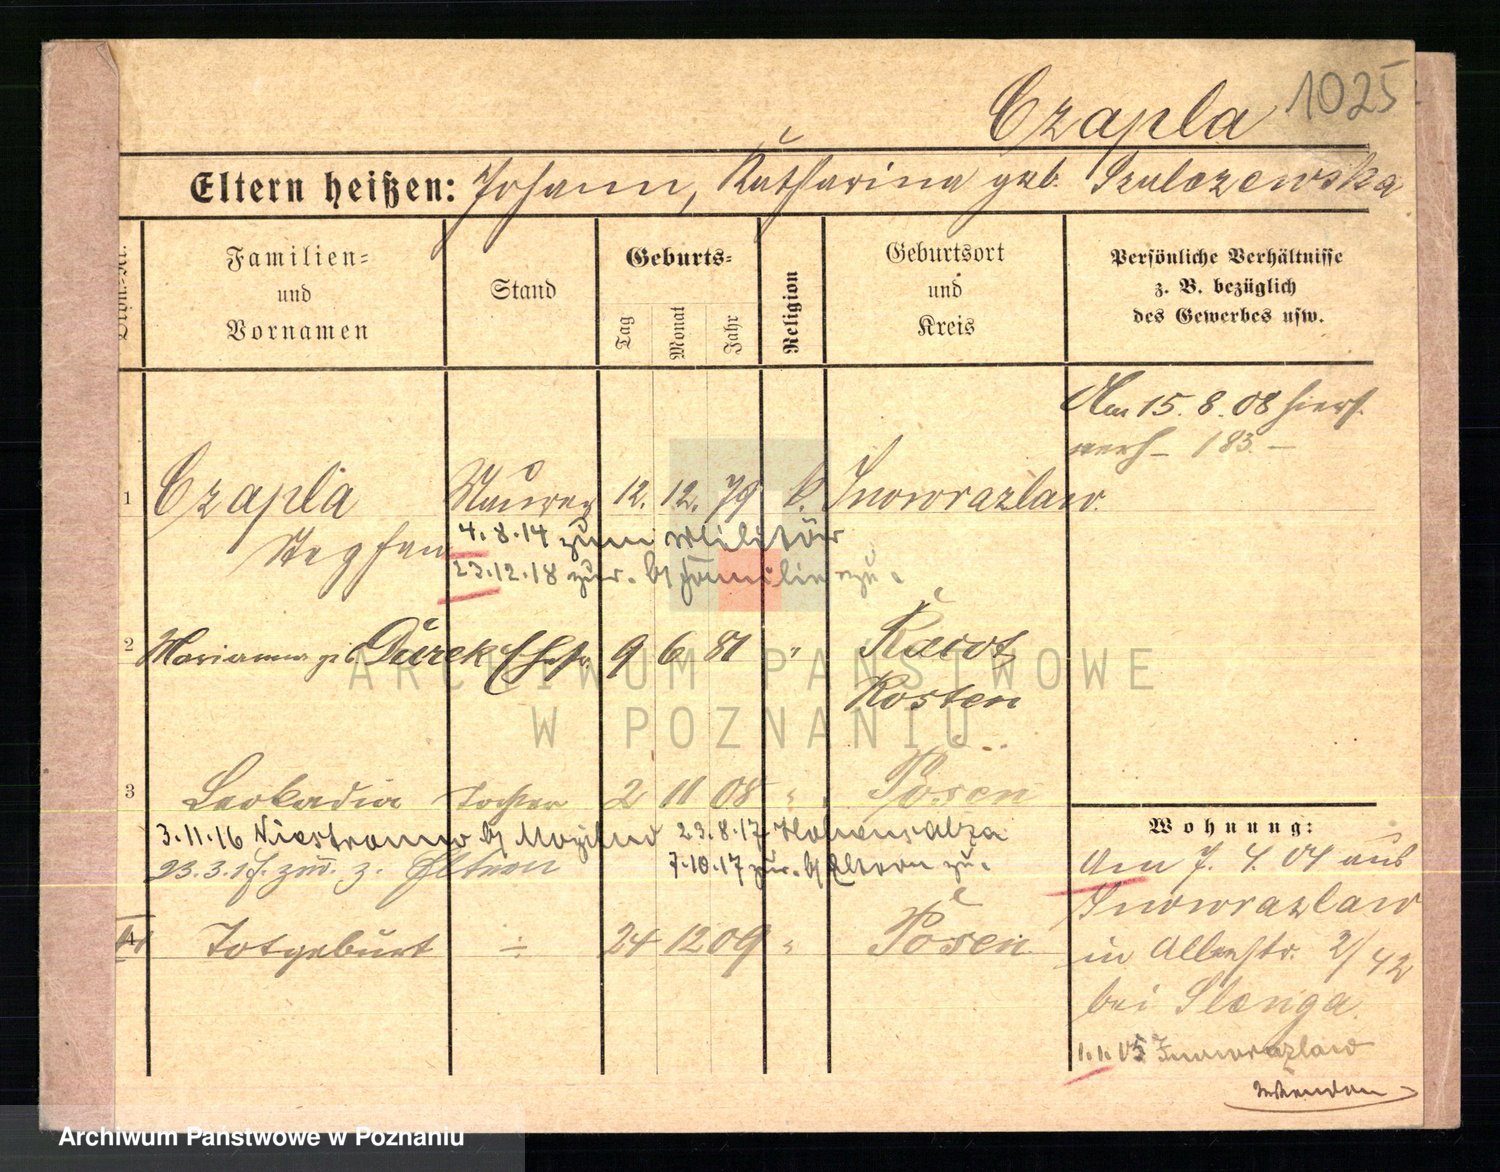 Czapla 1025
Eltern heißen: Johann, Katharina geb. Szulczewska
Familien= und Vornamen
Stand
Geburts=
Tag Monat Jahr
Religion
Geburtsort und Kreis
Persönliche Verhältnisse
z. B. bezüglich
des Gewerbes usw.
Am 15. 8. 08 hiers.
verh – 183. –
1 Czapla Maurer 12. 12. 79 k. Inowrazlaw.
Stephan
4.8.14 zum Militär
23.12.18 zur. b/ Familie zu.
2 Marianna geb. Durek Ehefr. 9 6 81 "
Kosten
3 Leokadia Tochter 2 11 08 " Posen
3.11.16 b/ 23.8.17 Hohensalza
23.3.17. zur. z. Eltern 7.10.17 zur. b/ Eltern zu.
4 Totgeburt ÷ 24 12 09 " Posen
Wohnung:
Am 7. 4. 04 aus
Inowrazlaw
in Allerstr. 2/42
bei Slenga.
1.1.05 Inowrazlaw
ARCHIWUM PAŃSTWOWE
W POZNANIU
Archiwum Państwowe w Poznaniu